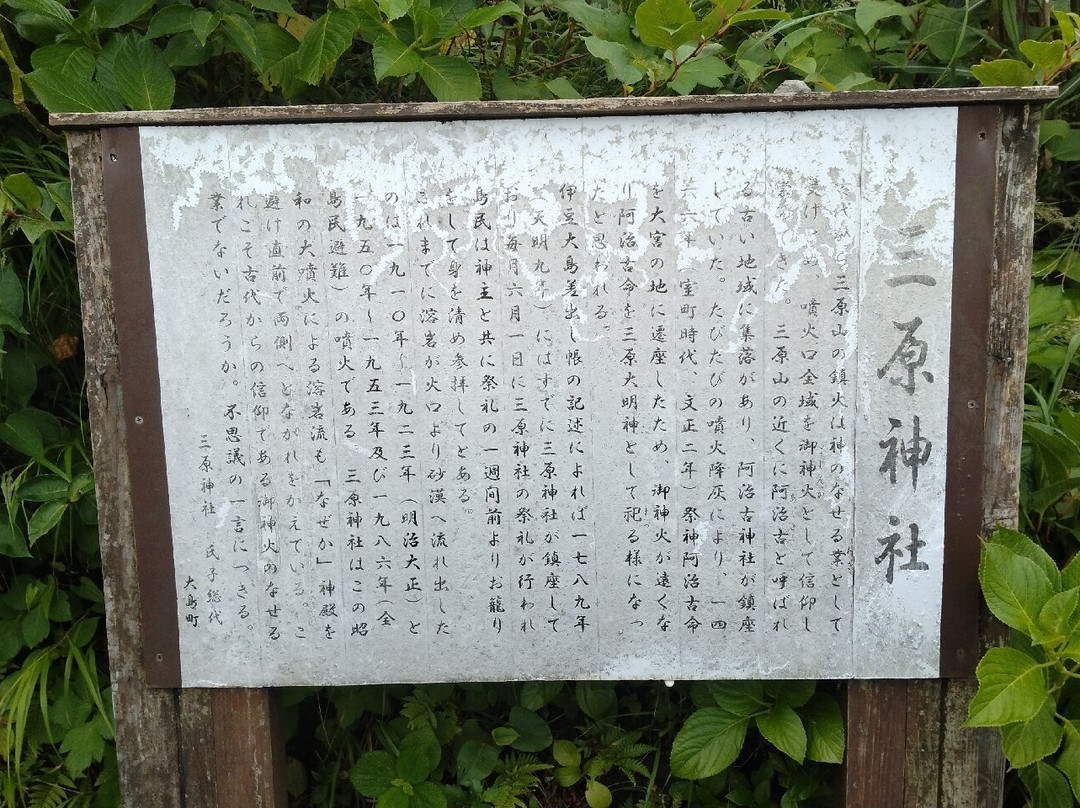 三原神社
代から三原山の鎮火は神のなせる業として
噴火口全域を御神火として信仰し
きた。 三原山の近くに阿治古と呼ばれ
る古い地域に集落があり、阿治古神社が鎮座
していた。たびたびの噴火降灰により、一四
六六年(室町時代、文正二年)祭神阿治古命
を大宮の地に遷座したため、御神火が遠くな
り阿治古命を三原大明神として祀る様になっ
たと思われる。
伊豆大島差出し帳の記述によれば一七八九年
(天明九年)にはすでに三原神社が鎮座して
おり毎月六月一日に三原神社の祭礼が行われ
島民は神主と共に祭礼の一週間前よりお籠り
をして身を清め参拝してとある。
これまでに溶岩が火口より砂漠へ流れ出した
のは一九一〇年~一九二三年(明治大正)と
一九五〇年~一九五三年及び一九八六年(全
島民避難)の噴火である 三原神社はこの昭
和の大噴火による溶岩流も「なぜか」神殿を
避け直前で両側へとながれをかえている。こ
れこそ古代からの信仰である御神火のなせる
業でないだろうか。不思議の一言につきる。
三原神社 氏子総代
大島町